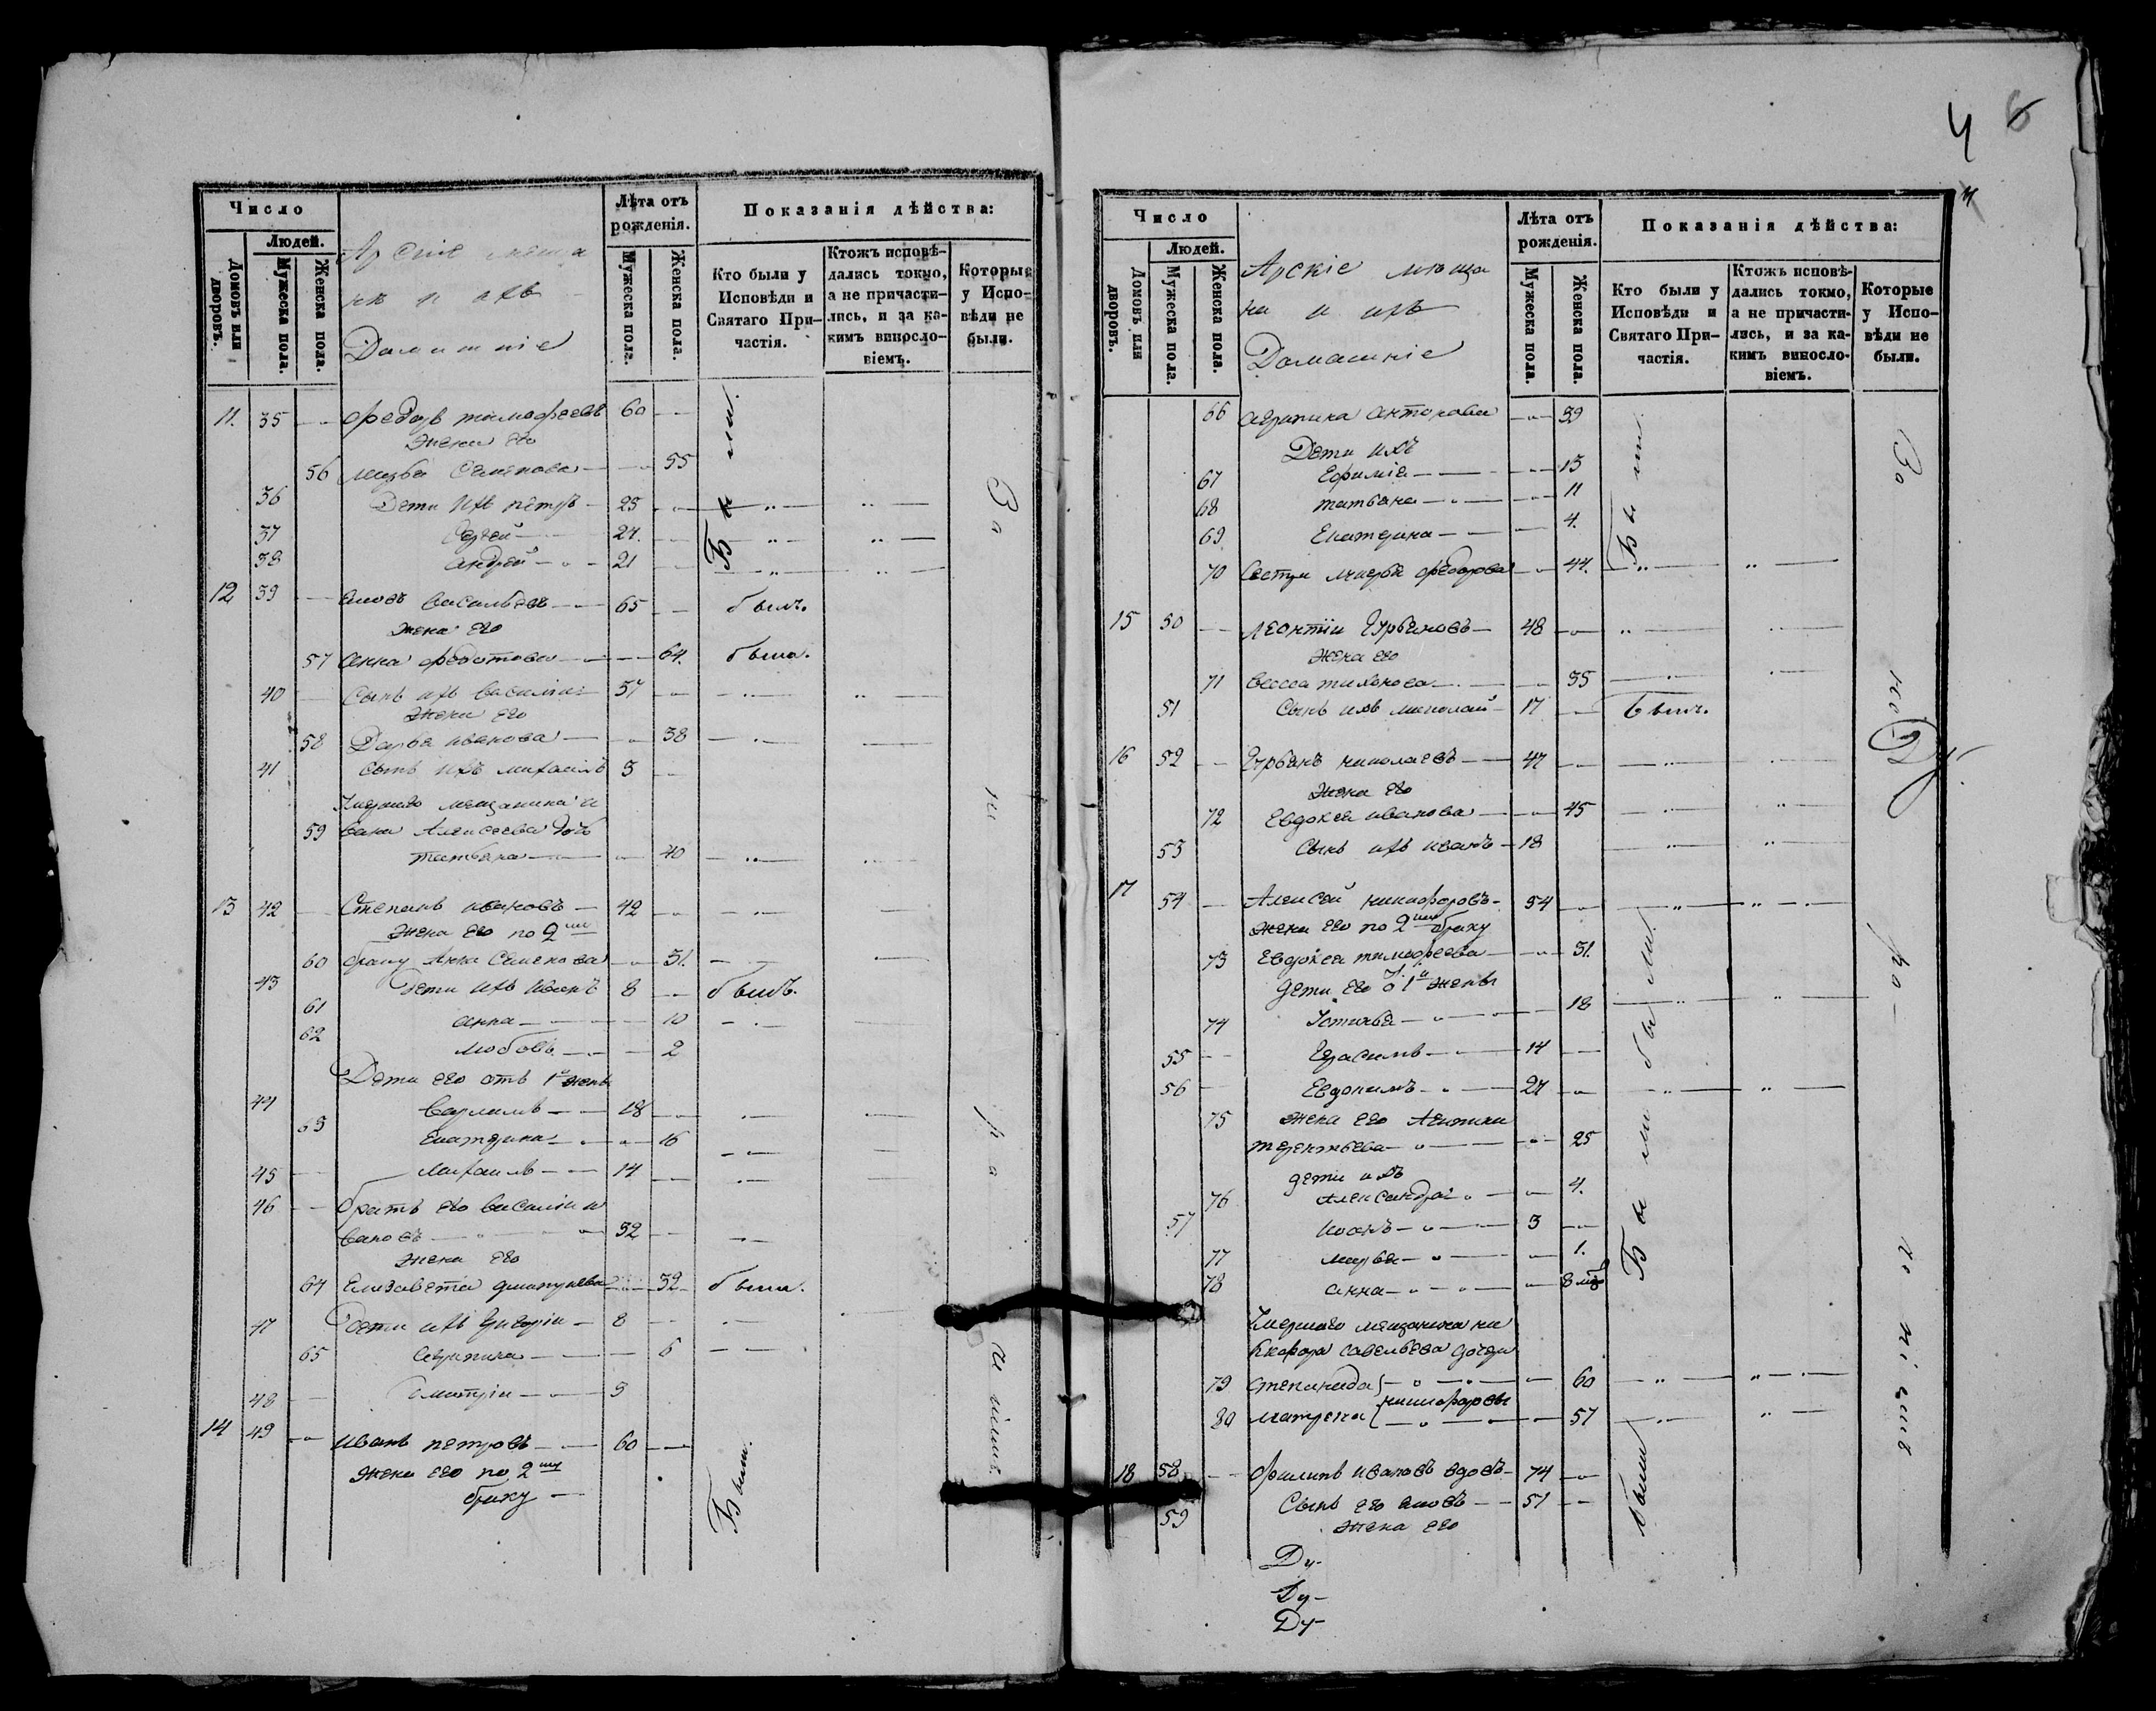 Число
Людей.
Домовъ или дворовъ.
Мужеска пола.
Женска пола.
Лѣта отъ рожденія.
Мужеска пола.
Женска пола.
Показанія дѣйства:
Кто были у Исповѣди и Святаго При-частія.
Ктожъ исповѣ-дались токмо, а не причасти-лись, и за ка-кимъ винословіемъ.
Которые у Испо-вѣди не были.
Арскіе меща
не и ихъ
Домашніе
11. 35 Федоръ тимофеевъ 60
Жена его
56 Марья Семенова 55
36 Дети ихъ петръ 25
37 Сергей 27.
38 андрей 21
12 39 василь​евъ 65 былъ.
жена его
57 анна федотова 64. была.
40 Сынъ ихъ василіи 37
Жена его
58 Дарья иванова 38
41 Сынъ ихъ михаилъ 3
Умершаго мещанина и
59 вана Алексеева дочь
татьяна 40
13 42 Степанъ ивановъ 42
Жена его по 2му
60 браку Анна Семенова 31.
43 Дети ихъ иванъ 8 былъ.
61 анна 10
62 любовь 2
Дети его отъ 1й жены
44 18
63 Екатерина 16
45 михаилъ 14
46 братъ его василіи и
вановъ 32
Жена его
64 Елизавета 32 была.
47 Дети ихъ григоріи 8
65 агрипина 6
48 дмитріи 3
14 49 иванъ петровъ 60
Жена его по 2му
браку
Были.
4 6
Число
Людей.
Домовъ или дворовъ.
Мужеска пола.
Женска пола.
Лѣта отъ рожденія.
Мужеска пола.
Женска пола.
Показанія дѣйства:
Кто были у Исповѣди и Святаго При-частія.
Ктожъ исповѣ-дались токмо, а не причасти-лись, и за ка-кимъ винословіемъ.
Которые у Испо-вѣди не были.
Арскіе меща
не и ихъ
Домашніе
66 агрипина антонова 39
Дети ихъ
67 Ефиміа 13
68 татьяна 11
69 Екатерина 4.
70 Сестра марья федорова 44.
15 50 леонтіи 48
жена его
71 тихонова 35
51 Сынъ ихъ николай 17 былъ.
16 52 николаевъ 47
жена его
72 Евдокея иванова 45
53 Сынъ ихъ иванъ 18
17 54 Алексей никифоровъ 54
жена его по 2му браку
73 Евдокея тимофеева 51.
дети его о 1й жены
74 Устинья 18
55 Герасимъ 14
56 Евдокимъ 27
75 жена его
терентьева 25
дети ихъ
76 Александра 4.
57 иванъ 3
77 марья 1.
78 анна 8 мѣс
Умершаго мещанина ни
кифора савельева дочери
79 степанида 60
никифоровы
80 матрена 57
18 58 филипъ ивановъ вдовъ 74
59 Сынъ его 51
жена его
Были